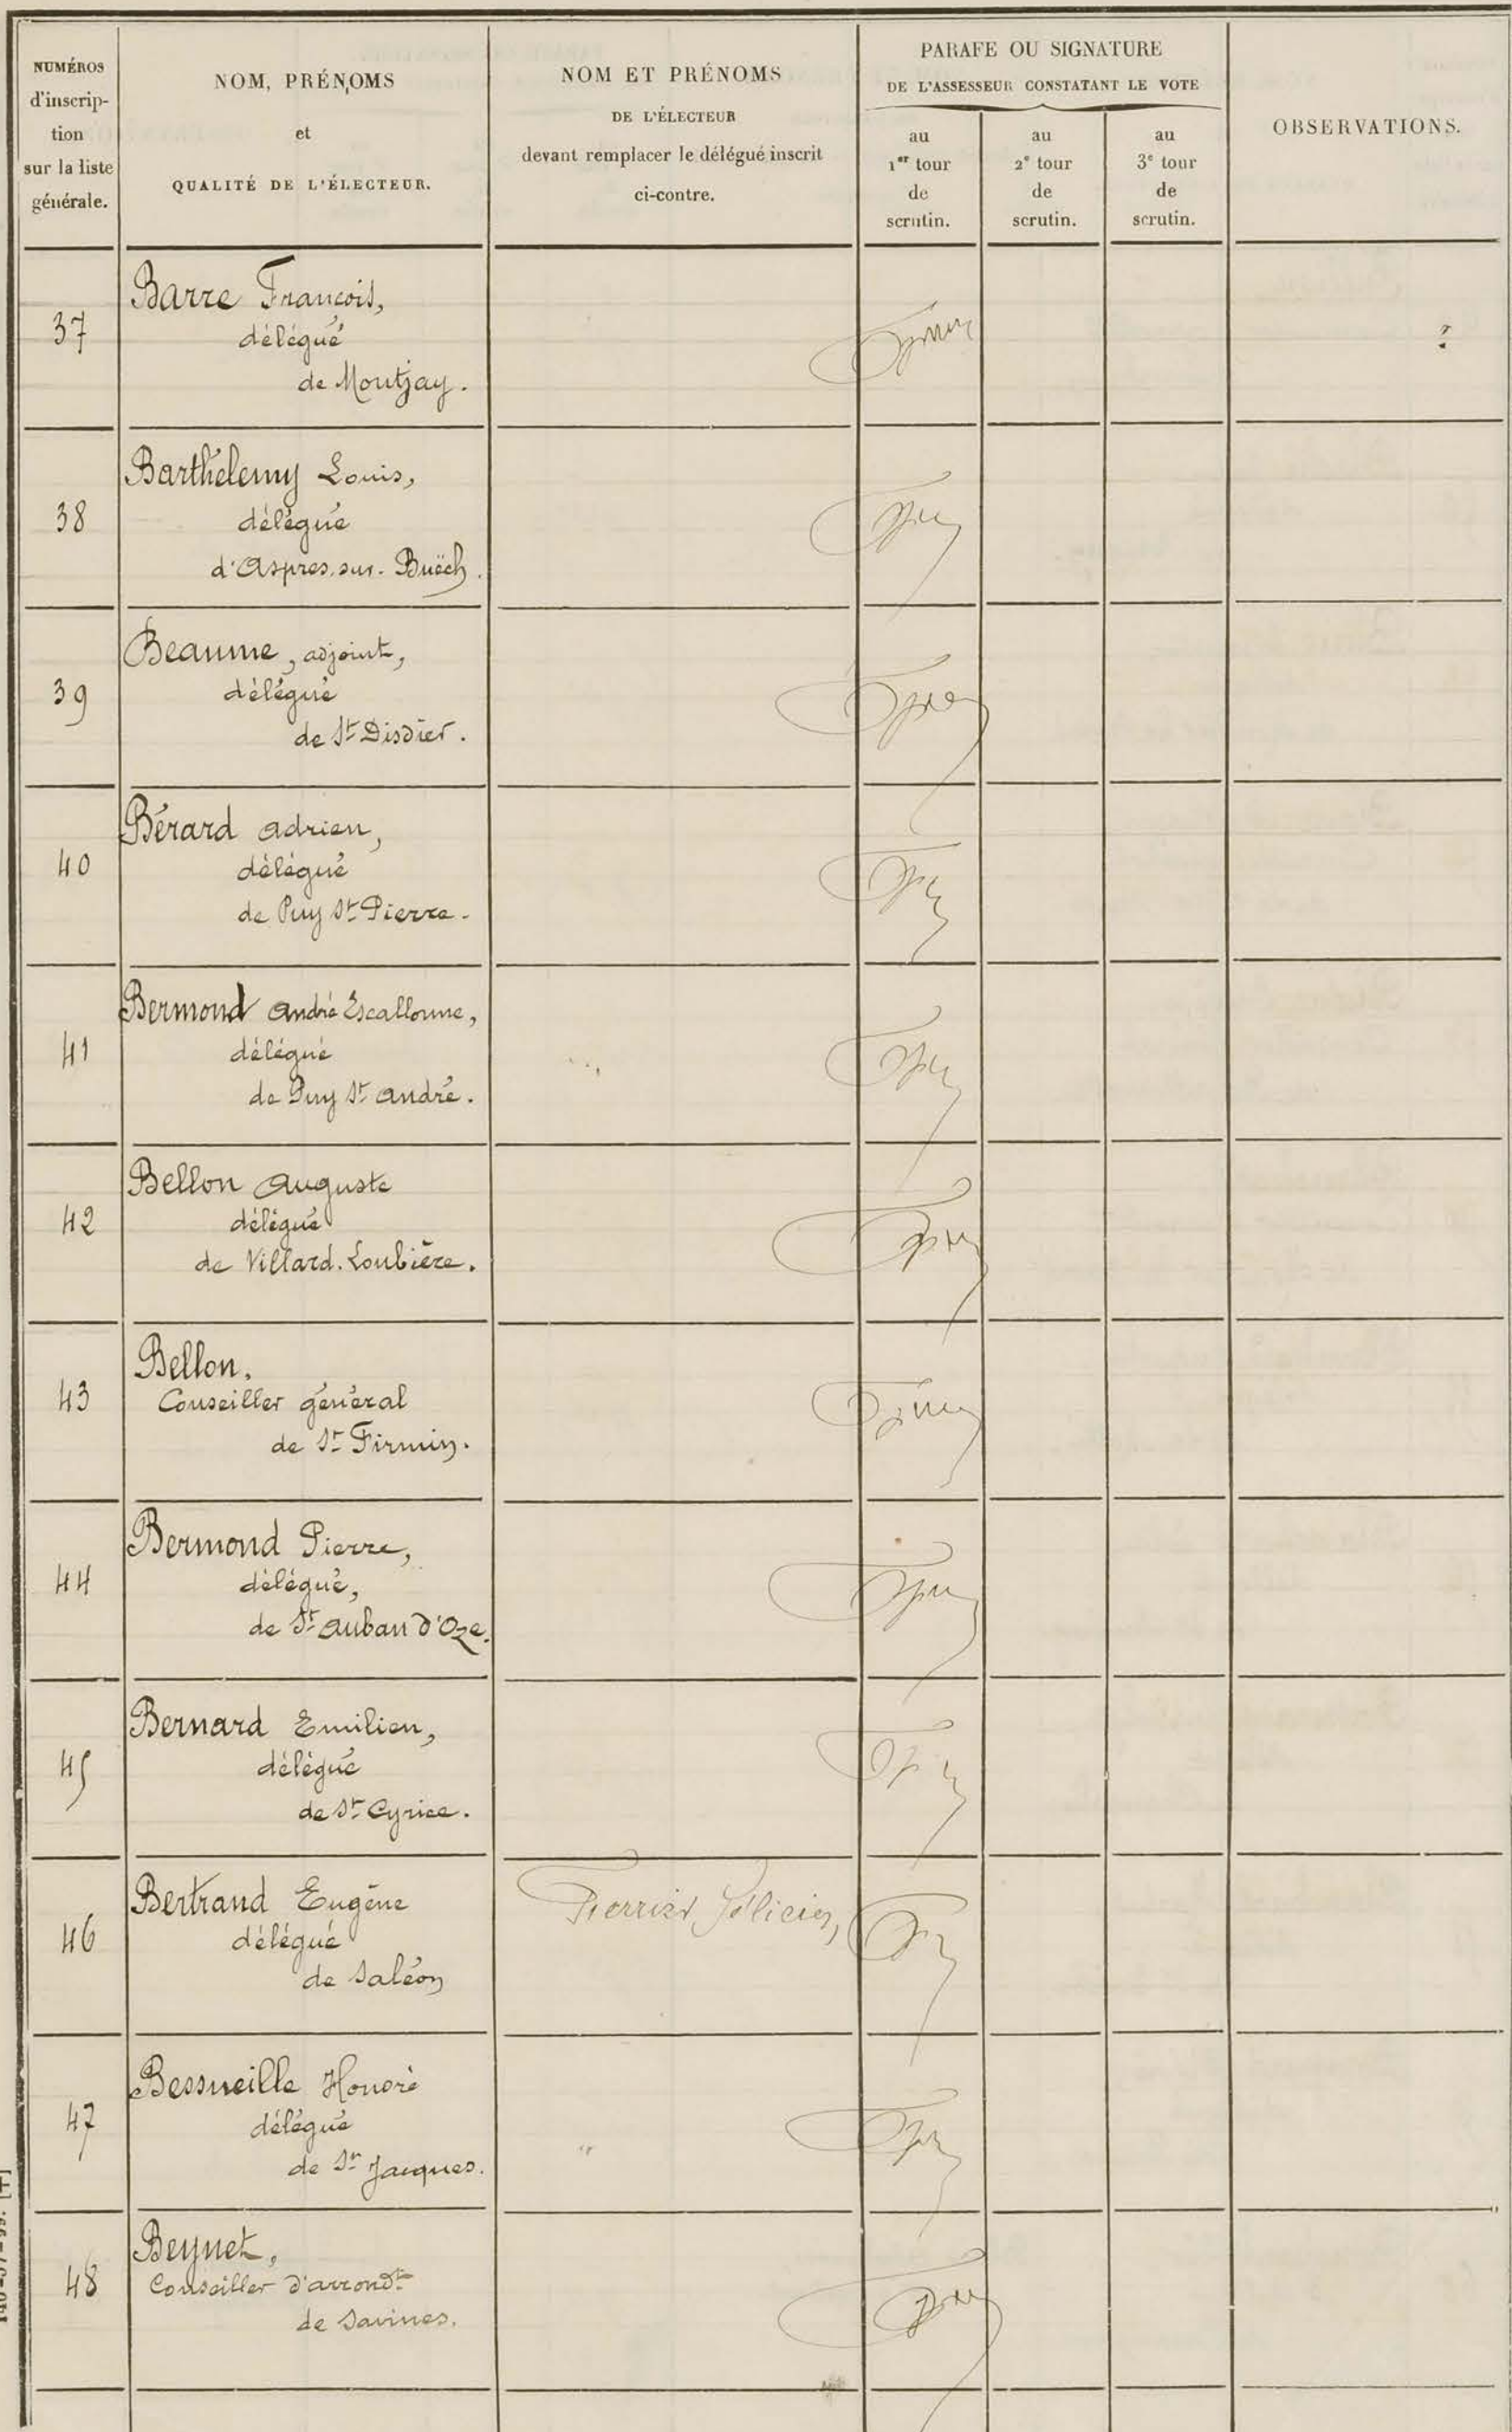 NUMÉROS
d'inscrip-
tion
sur la liste
générale.
NOM, PRÉNOMS
et
QUALITÉ DE L'ÉLECTEUR.
NOM ET PRÉNOMS
DE L'ÉLECTEUR
devant remplacer le délégué inscrit
ci-contre.
PARAFE OU SIGNATURE
DE L'ASSESSEUR CONSTATANT LE VOTE
au
1er tour
de
scrutin.
au
2e tour
de
scrutin.
au
3e tour
de
scrutin.
OBSERVATIONS.
37
Barre François,
délégué
de Montjay.
?
38
Barthélemy Louis,
délégué
d'Aspres.sur.Buëch.
39
Beaume, adjoint,
délégué
de St Disdier.
40
Bérard Adrien,
délégué
de Puy St Pierre.
41
Bermond André Escallonne,
délégué
de Puy St André.
42
Bellon Auguste
délégué
de Villard.Loubière.
43
Bellon.
Conseiller général
de St Firmin.
44
Bermond Pierre,
délégué,
de St Auban d'Oze.
45
Bernard Emilien,
délégué
de St Cyrice.
46
Bertrand Eugène
délégué
de Saléon
Perrier Félicien,
47
Bessueille Honoré
délégué
de St Jacques.
"
48
Beynet,
Conseiller d'arrondt
de Savines.